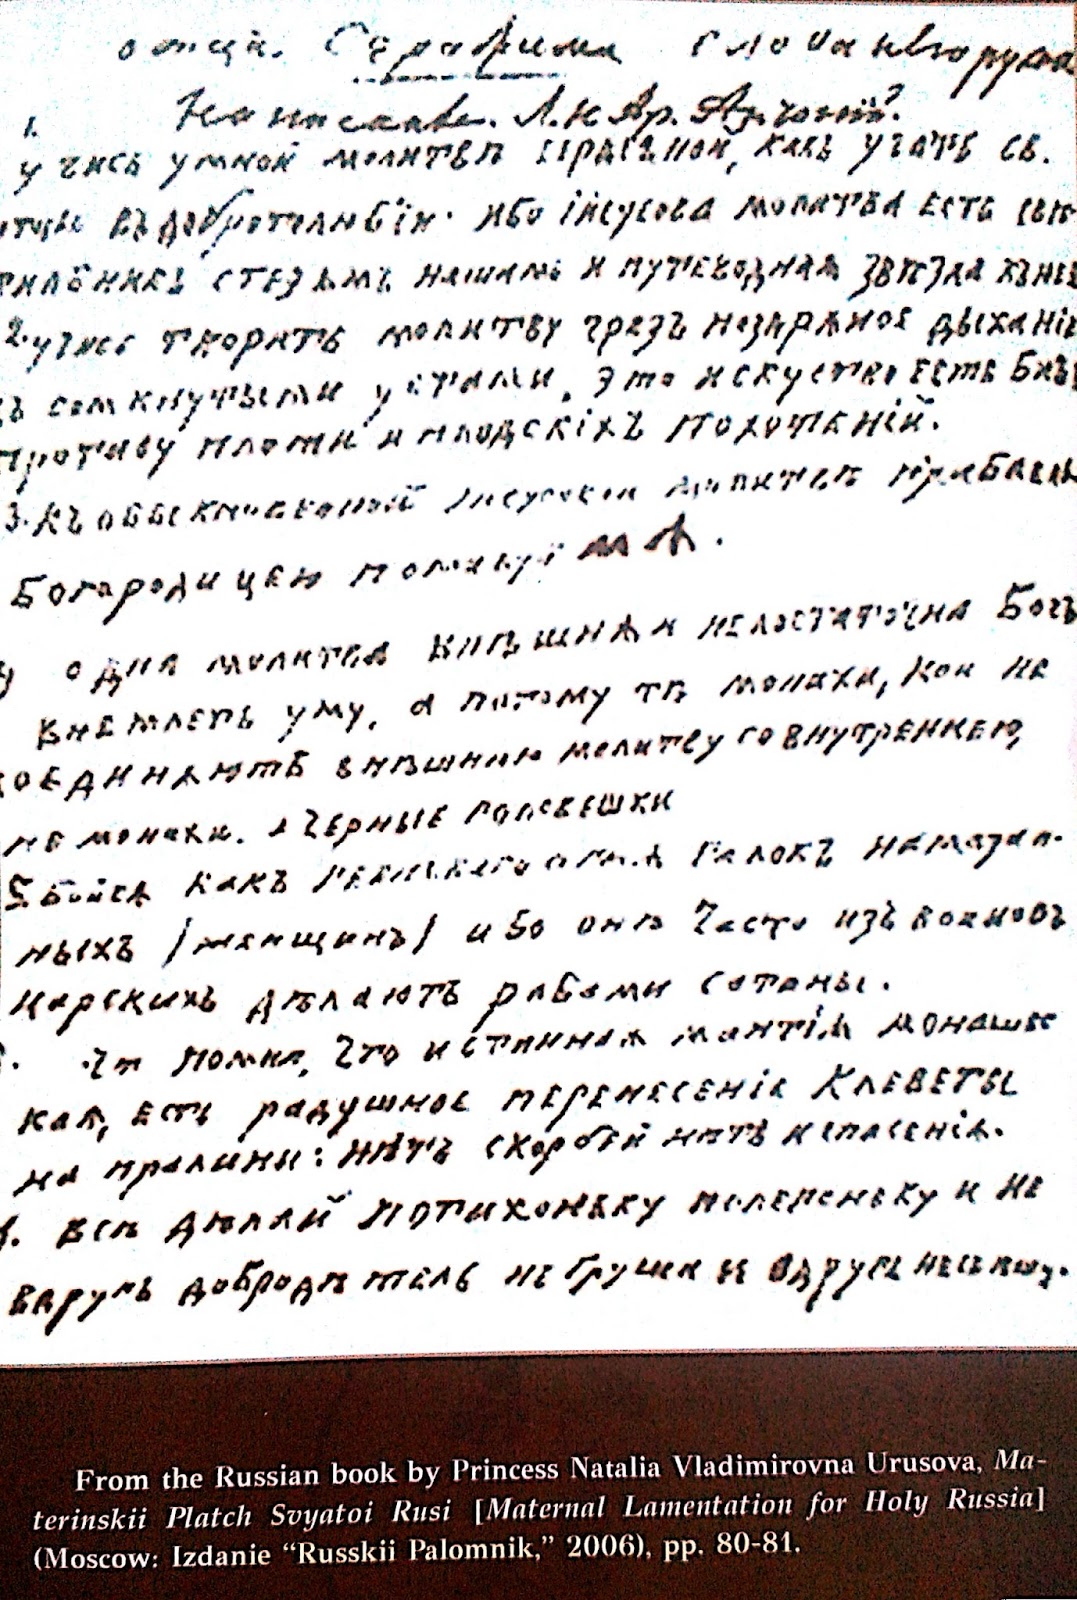 отца. Серафима слова его рукою
написаные. А.К Ар. Антоній?
1.
учись умной молитвѣ сердечной, какъ учатъ св.
отцы въ добротолюбіи. ибо іисусова молитва есть свѣ
тильникъ стезямъ нашимъ и путеводная звѣзда къ неб
2. учись творить молитву чрезъ ноздряное дыханіе
съ сомкнутыми устами, это искуство есть бичъ
противу плоти и плодскіхъ похотѣній.
3. къ обыкновенной іисусовой молитвѣ прибавь
Богородицею помилуй мя.
одна молитва внѣшняя недостаточна Богъ
внемлетъ уму, а потому тѣ монахи, кои не
соединяютъ внѣшнюю молитву со внутреннею,
не монахи. а черные головешки
5 Бойся какъ геенскаго огня галокъ намазан-
ныхъ /женщинъ/ ибо онѣ часто изъ воиновъ
царскихъ дѣлаютъ рабами сатаны.
помни, что истинная мантія монашес
кая, есть радушное перенесеніе клеветы
на пралины: нѣтъ скорбей нѣтъ и спасенія.
всѣ дѣлай потихоньку полегоньку и не
вдругъ добродѣтель не груша ее вдругъ не съѣшь.
From the Russian book by Princess Natalia Vladimirovna Urusova, Ma-
terinskii Platch Svyatoi Rusi [Maternal Lamentation for Holy Russia]
(Moscow: Izdanie “Russkii Palomnik,” 2006), pp. 80-81.